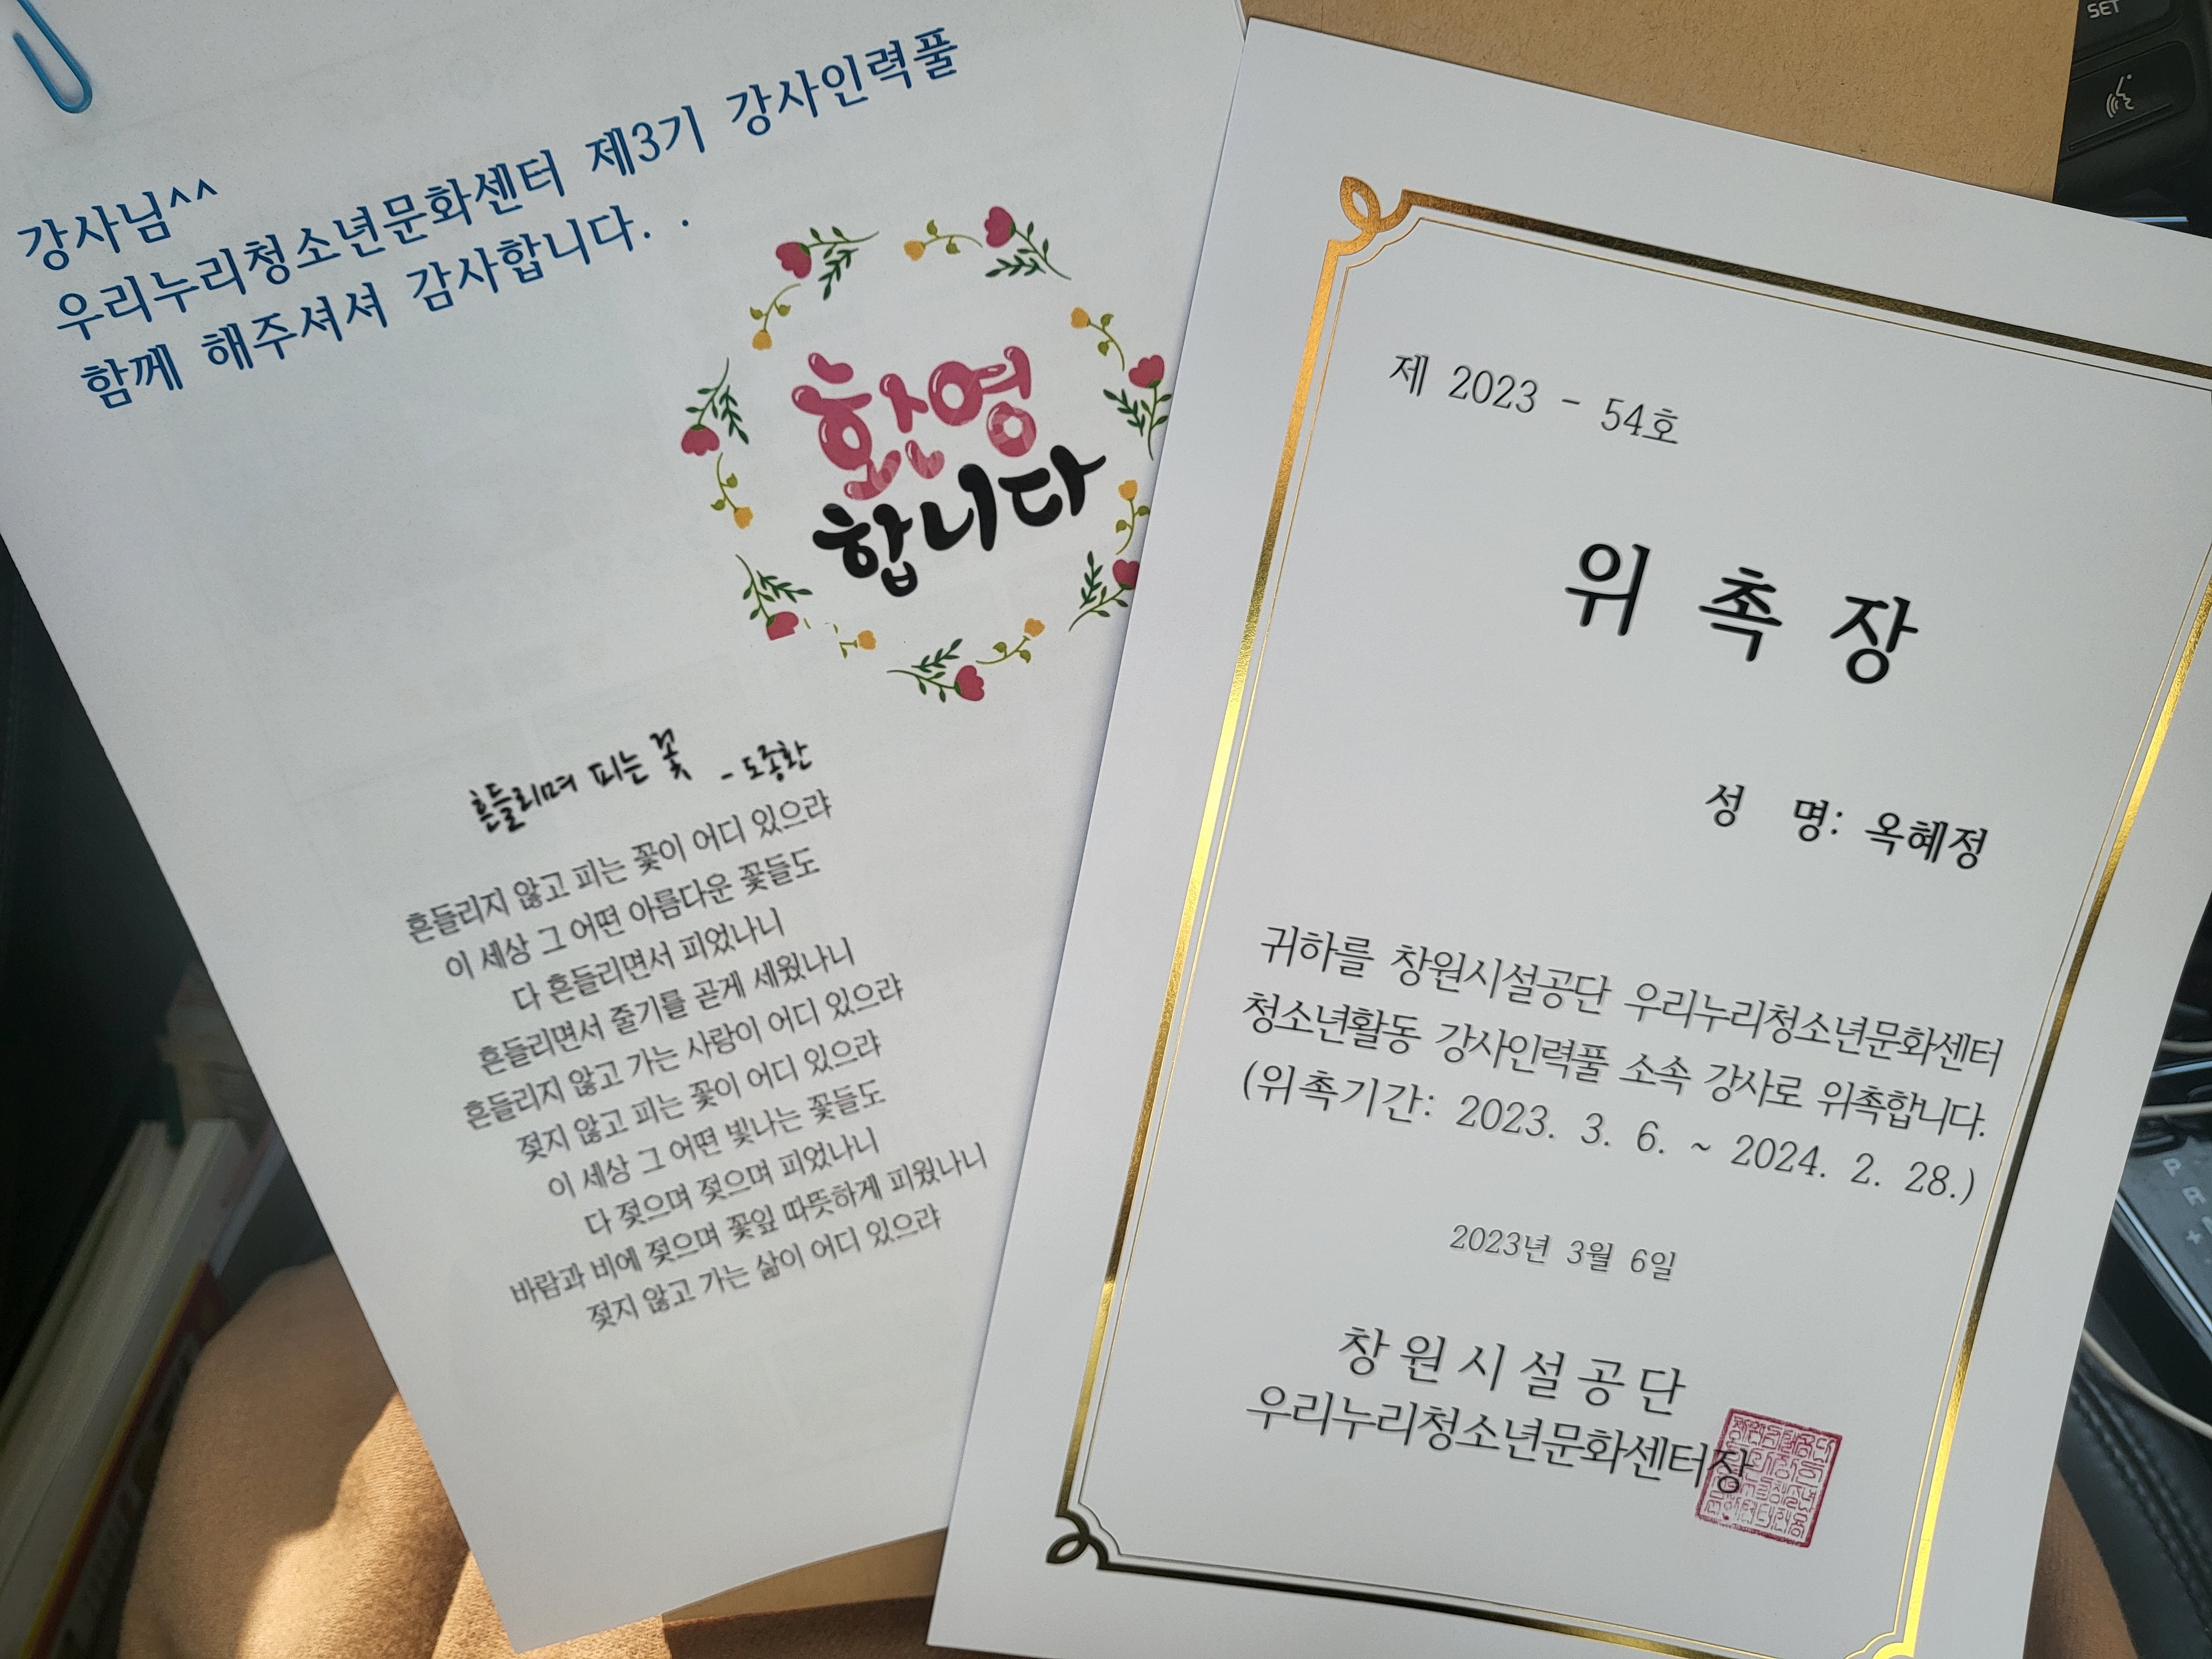 강사님^^
우리누리청소년문화센터 제3기 강사인력풀
함께 해주셔셔 감사합니다. .
환영
합니다
흔들리며 피는 꽃 - 도종환
흔들리지 않고 피는 꽃이 어디 있으랴
이 세상 그 어떤 아름다운 꽃들도
다 흔들리면서 피었나니
흔들리면서 줄기를 곧게 세웠나니
흔들리지 않고 가는 사랑이 어디 있으랴
젖지 않고 피는 꽃이 어디 있으랴
이 세상 그 어떤 빛나는 꽃들도
다 젖으며 젖으며 피었나니
바람과 비에 젖으며 꽃잎 따뜻하게 피웠나니
젖지 않고 가는 삶이 어디 있으랴
제 2023 - 54호
위 촉 장
성 명: 옥혜정
귀하를 창원시설공단 우리누리청소년문화센터
청소년활동 강사인력풀 소속 강사로 위촉합니다.
(위촉기간: 2023. 3. 6. ~ 2024. 2. 28.)
2023년 3월 6일
창원시설공단
우리누리청소년문화센터장
SET
P
R